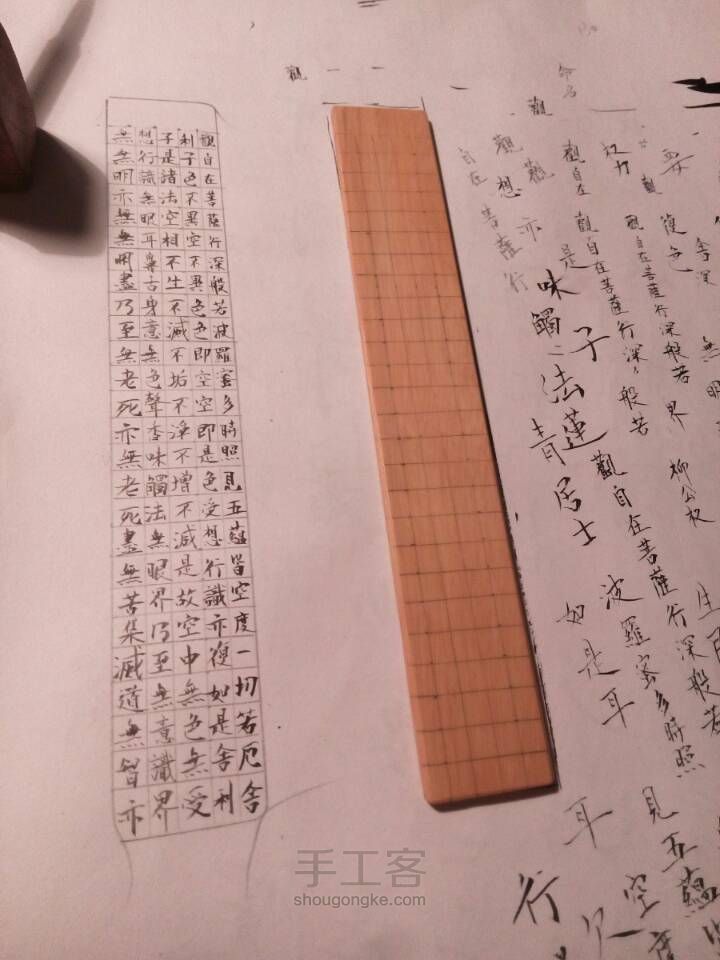 觀自在菩薩行深般若波羅蜜多時照見五蘊皆空度一切若厄舍
利子色不異空不異色色即空空即是色受想行識亦復如是舍利
子是諸法空相不生不滅不垢不淨不增不減是故空中無色無受
想行識無眼耳鼻舌身意無色聲香味觸法無眼界乃至無意識界
無無明亦無無明盡乃至無老死亦無老死盡無苦集滅道無智亦
觀一一
命名
觀
復色
柳公權
觀自在菩薩行深般若界
觀自在觀自在菩薩行深般若
觀自在菩薩行深般若
觀亦是子蓮
波羅蜜多時照
見五蘊
觀想
菩薩行
自在
味觸法青居士
如是耳
耳
行
空度
手工客
shougongke.com